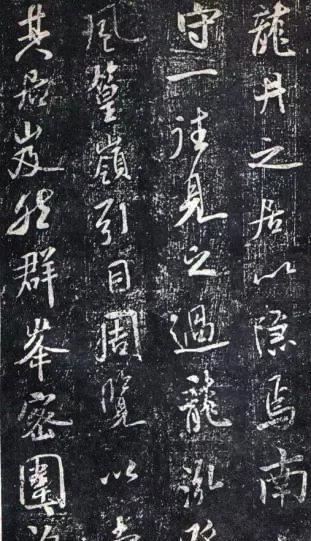 龍井之居以隱焉南
守一往見之過龍泓
風篁嶺引目周覽以
其居岌然群峯密圍